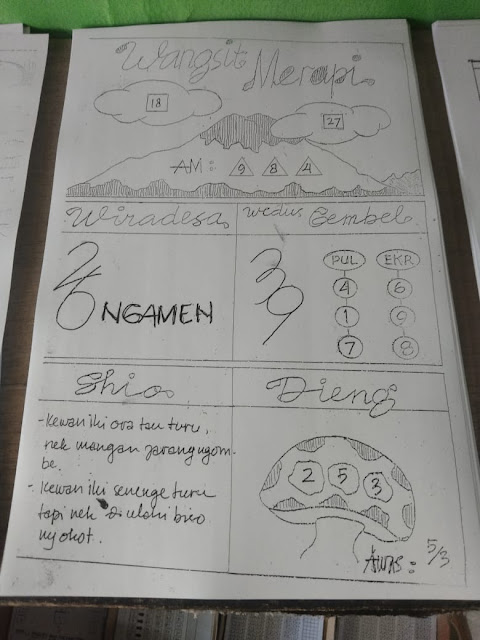 Wangsit Merapi
18
27
AM : 9 8 4
Wiradesa
26 NGAMEN
Wedus Gembel
39
PUL EKR
4 6
1 9
7 8
Shio
- Kewan iki ora tau turu,
nek mangan jarang ngom-
be.
- Kewan iki senenge turu
tapi nek di ulahi biso
nyokot.
Dieng
2 5 3
AWAS : 5/3